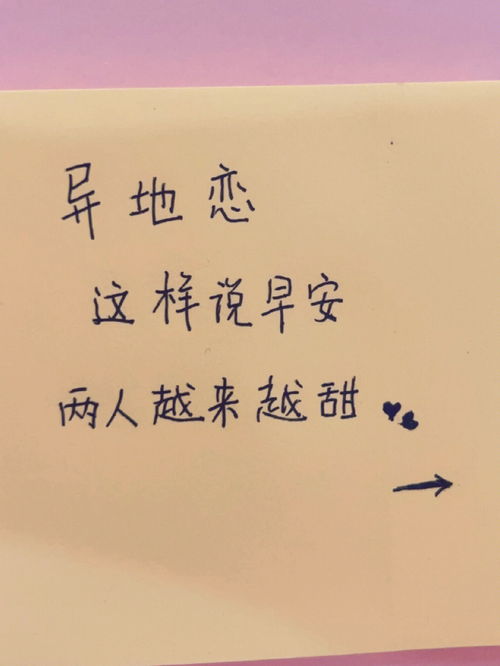 异地恋
这样说早安
两人越来越甜